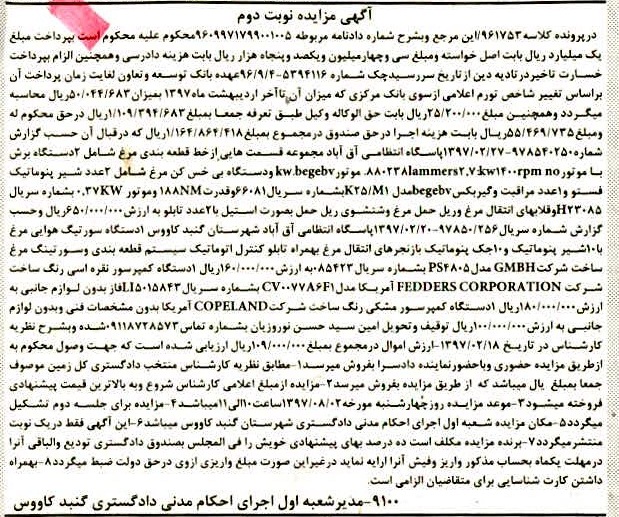 آگهی مزایده نوبت دوم
در پرونده کلاسه ۹۶۱۷۵۳/این مرجع وبشرح شماره دادنامه مربوطه ۹۶۰۹۹۷۱۷۹۹۰۰۱۰۰۵محکوم علیه محکوم است بپرداخت مبلغ
یک میلیارد ریال بابت اصل خواسته ومبلغ سی وچهارمیلیون ویکصد وپنجاه هزار ریال بابت هزینه دادرسی وهمچنین الزام بپرداخت
خسارت تاخیر در تادیه دین از تاریخ سررسیدچک شماره ۵۳۹۴۱۱۶-۹۶/۹/۴عهده بانک توسعه و تعاون لغایت زمان پرداخت آن
براساس تغییر شاخص تورم اعلامی ازسوی بانک مرکزی که میزان آن تاآخر اردیبهشت ماه۱۳۹۷ بمیزان۵۰/۰۴۴/۶۸۳ریال محاسبه
میگردد وهمچنین مبلغ۲۵/۲۰۰/۰۰۰ریال بابت حق الوکاله وکیل طبق تعرفه جمعا بمبلغ۱/۱۰۹/۳۹۴/۶۸۳ریال درحق محکوم له
ومبلغ۵۵/۴۶۹/۷۳۵ریال بابت هزینه اجرا درحق صندوق درمجموع بمبلغ۱/۱۶۴/۸۶۴/۴۱۸ریال که درقبال آن حسب گزارش
شماره۹۷۸۵۴۰۲۵۰-۱۳۹۷/۰۲/۲۷پاسگاه انتظامی آق آباد مجموعه قسمت هایی ازخط قطعه بندی مرغ شامل ۲دستگاه برش
با موتور۸۸۰۲۳۸lammers۲.۷:kw۱۴۰۰rpm no موتورkw.begebv ودستگاه بی خس کن مرغ شامل ۲عدد شیر پنوماتیک
فستو و۱عدد مراقبت وگیربکسbegebv مدل K۲۵/M۱بشماره سریال۶۶۰۸۱وقدرت۱۸۸NM وموتور ۰.۳۷KW بشماره سریال
H۲۳۰۸۵وقلابهای انتقال مرغ وریل حمل مرغ وشتشوی ریل حمل بصورت استیل با۲عدد تابلو به ارزش۶۵۰/۰۰۰/۰۰۰ریال وحسب
گزارش شماره ۹۷۸۵۰/۲۵۶-۱۳۹۷/۰۲/۲۰پاسگاه انتظامی آق آباد شهرستان گنبد کاووس ۱دستگاه سورتینگ هوایی مرغ
با۱۰شیر پنوماتیک و۱۰جک پنوماتیک بازنجرهای انتقال مرغ بهمراه تابلو کنترل اتوماتیک سیستم قطعه بندی وسورتینگ مرغ
ساخت شرکت GMBH مدل PS۴۸۰۵ بشماره سریال ۰۸۵۴۲۳به ارزش ۱۶۰/۰۰۰/۰۰۰ریال ۱دستگاه کمپرسور نقره اسی رنگ ساخت
شرکت FEDDERS CORPORATION آمریکا مدل CV۰۰۷۷۸۶F۱ بشماره سریال LI۵۰۱۵۸۴۳فاز بدون لوازم جانبی به
ارزش۱۸۰/۰۰۰/۰۰۰ریال ۱دستگاه کمپرسور مشکی رنگ ساخت شرکت COPELAND آمریکا بدون مشخصات فنی وبدون لوازم
جانبی به ارزش۱۰۰/۰۰۰/۰۰۰ریال توقیف وتحویل امین سید حسن نوروزیان بشماره تماس۰۹۱۱۸۷۲۸۵۷۳شده وبشرح نظریه
کارشناس در تاریخ ۱۳۹۷/۰۲/۱۸-ارزش اموال درمجموع بمبلغ۱/۰۹۰/۰۰۰/۰۰۰ریال ارزیابی شده است که جهت وصول محکوم به
ازطریق مزایده حضوری وباحضورنماینده دادسرا بفروش میرسد۱-مطابق نظریه کارشناس منتخب دادگستری کل زمین موصوف
جمعا بمبلغ یال میباشد که از طریق مزایده بفروش میرسد۲-مزایده ازمبلغ اعلامی کارشناس شروع وبه بالاترین قیمت پیشنهادی
فروخته میشود۳-موعد مزایده روزچهارشنبه مورخه۱۳۹۷/۰۸/۰۲ساعت۱۰الی۱۱میباشد۴-مزایده برای جلسه دوم تشکیل
میگردد۵-مکان مزایده شعبه اول اجرای احکام مدنی دادگستری شهرستان گنبد کاووس میباشد۶-این آگهی فقط دریک نوبت
منتشرمیگردد۷-برنده مزایده مکلف است ده درصد بهای پیشنهادی خویش را فی المجلس بصندوق دادگستری تودیع والباقی آنرا
درمهلت یکماه بحساب مذکور واریز وفیش آنرا ارایه نماید درغیراین صورت مبلغ واریزی ازوی درحق دولت ضبط میگردد۸-بهمراه
داشتن کارت شناسایی برای متقاضیان الزامی است.
۹۱۰۰-مدیرشعبه اول اجرای احکام مدنی دادگستری گنبد کاووس